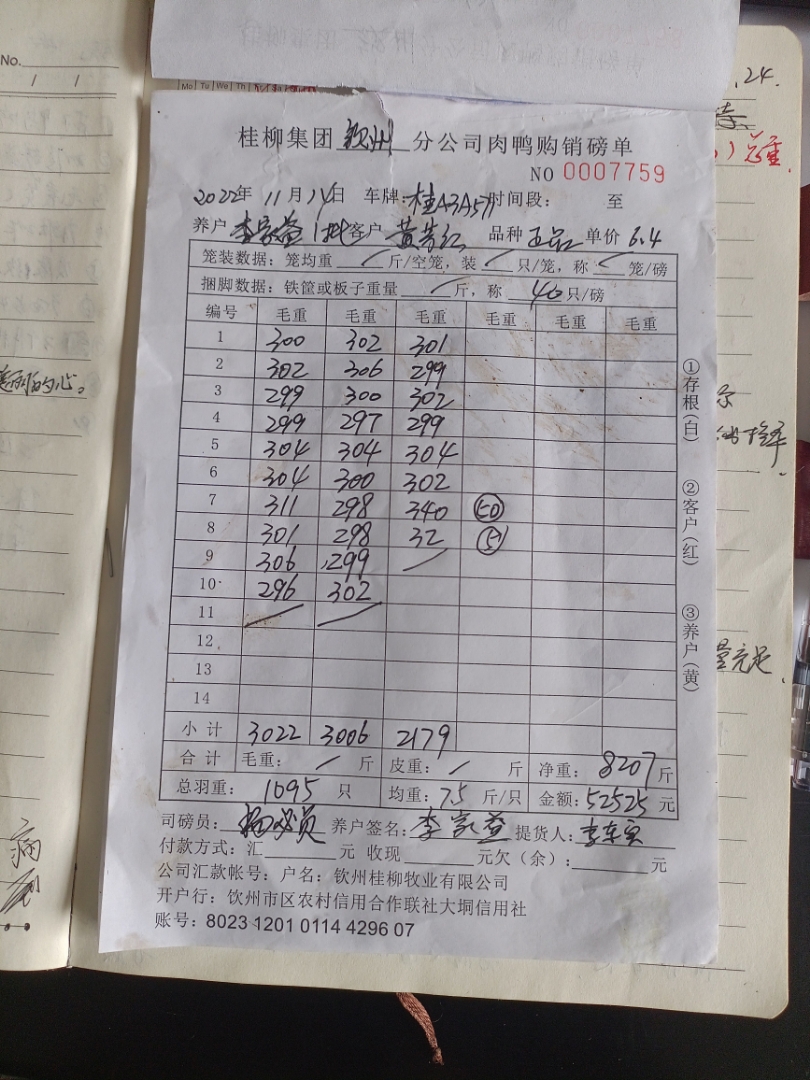 桂柳集团 钦州 分公司肉鸭购销磅单
NO 0007759
2022年 11月 14日 车牌: 桂A3A571 时间段: 至
养户 李家益 1批 客户 黄 品种 正品 单价 6.4
笼装数据: 笼均重 / 斤/空笼, 装 / 只/笼, 称 / 笼/磅
捆脚数据: 铁筐或板子重量 / 斤, 称 40 只/磅
编号 毛重 毛重 毛重 毛重 毛重 毛重
1 300 302 301
2 302 306 299
3 299 300 302
4 299 297 299
5 304 304 304
6 304 300 302
7 311 298 340 50
8 301 298 32 5
9 306 299 /
10 296 302
11 / /
12
13
14
小计 3022 3006 2179
合计 毛重: / 斤 皮重: / 斤 净重: 8207 斤
总羽重: 1095 只 均重: 7.5 斤/只 金额: 52525 元
司磅员: 养户签名: 李家益 提货人: 李东
付款方式: 汇 元 收现 元欠(余): 元
公司汇款帐号: 户名: 钦州桂柳牧业有限公司
开户行: 钦州市区农村信用合作联社大垌信用社
账号: 8023 1201 0114 4296 07
①存根(白)
②客户(红)
③养户(黄)
No.
Mo Tu We Th
.24.
总重
的心。
量充足
病